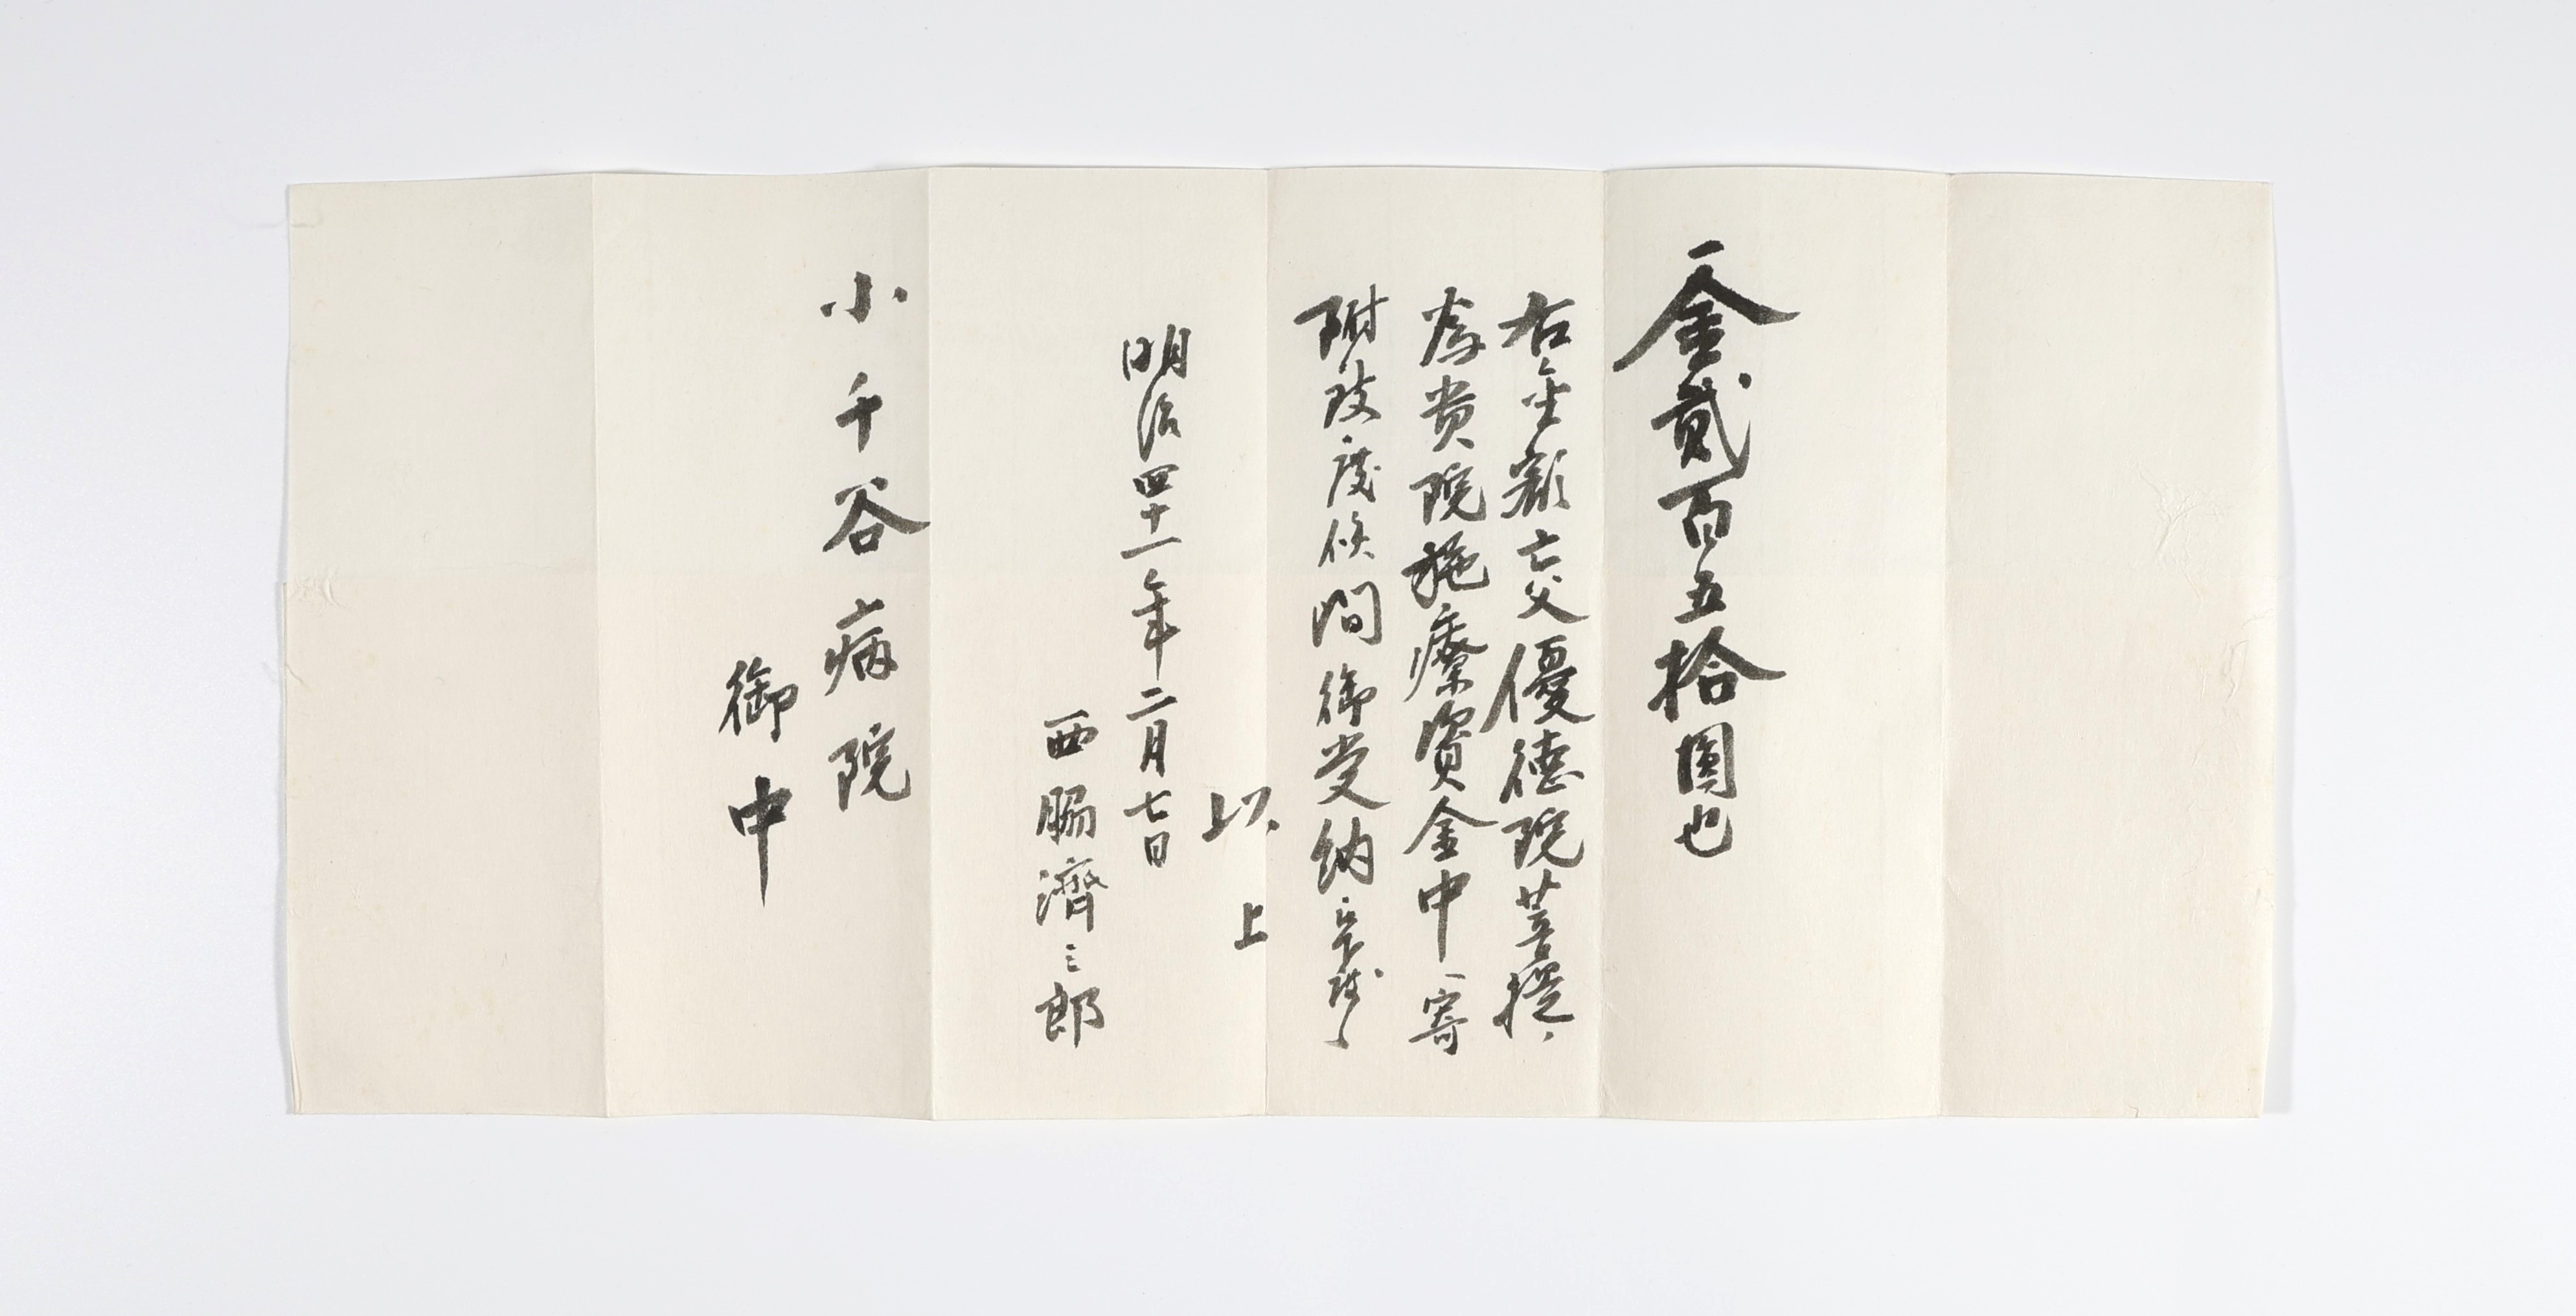 一金貳百五拾圓也
右金額亡父優徳院菩提
為貴院施療資金中ヘ寄
附致度候間御受納被下度候
以上
明治四十一年二月七日
西脇濟三郎
小千谷病院
御中